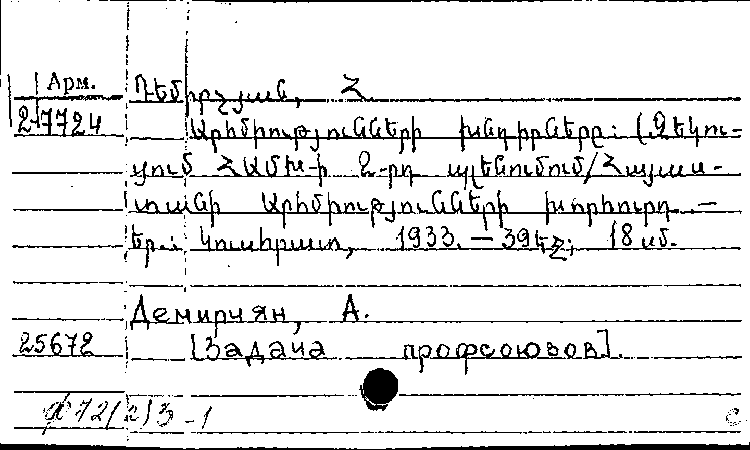 Арм.
Դեմիրչյան, Հ.
2-7724
Արհմիությունների խնդիրները: (Զեկու-
ցում ՀԱՄԽ-ի 2-րդ պլենումում/Հայաս-
տանի Արհմիությունների խորհուրդ.—
Եր.: Կուսհրատ, 1933.—39եջ; 18սմ.
Демирчян, А.
25672
[Задача профсоюзов].
ф 72(2)3-1
с